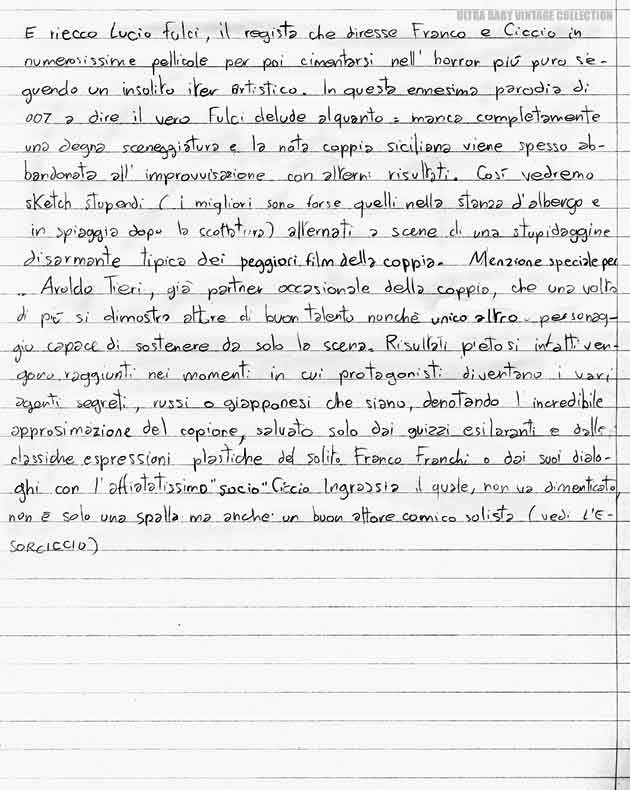 ULTRA BABY VINTAGE COLLECTION
E riecco Lucio Fulci, il regista che diresse Franco e Ciccio in
numerosissime pellicole per poi cimentarsi nell'horror più puro se-
guendo un insolito iter artistico. In questa ennesima parodia di
007 a dire il vero Fulci delude alquanto: manca completamente
una degna sceneggiatura e la nota coppia siciliana viene spesso ab-
bandonata all'improvvisazione con alterni risultati. Così vedremo
sketch stupendi (i migliori sono forse quelli nella stanza d'albergo e
in spiaggia dopo la scottatura) alternati a scene di una stupidaggine
disarmante tipica dei peggiori film della coppia. Menzione speciale per
.. Aroldo Tieri, già partner occasionale della coppia, che una volta
di più si dimostra attore di buon talento nonchè unico altro personag-
gio capace di sostenere da solo la scena. Risultati pietosi infatti ven-
gono raggiunti nei momenti in cui protagonisti diventano i vari
agenti segreti, russi o giapponesi che siano, denotando l'incredibile
approsimazione del copione, salvato solo dai guizzi esilaranti e dalle
classiche espressioni plastiche del solito Franco Franchi o dai suoi dialo-
ghi con l'affiatatissimo "socio" Ciccio Ingrassia il quale, non va dimenticato,
non è solo una spalla ma anche un buon attore comico solista (vedi L'E-
SORCICCIO)